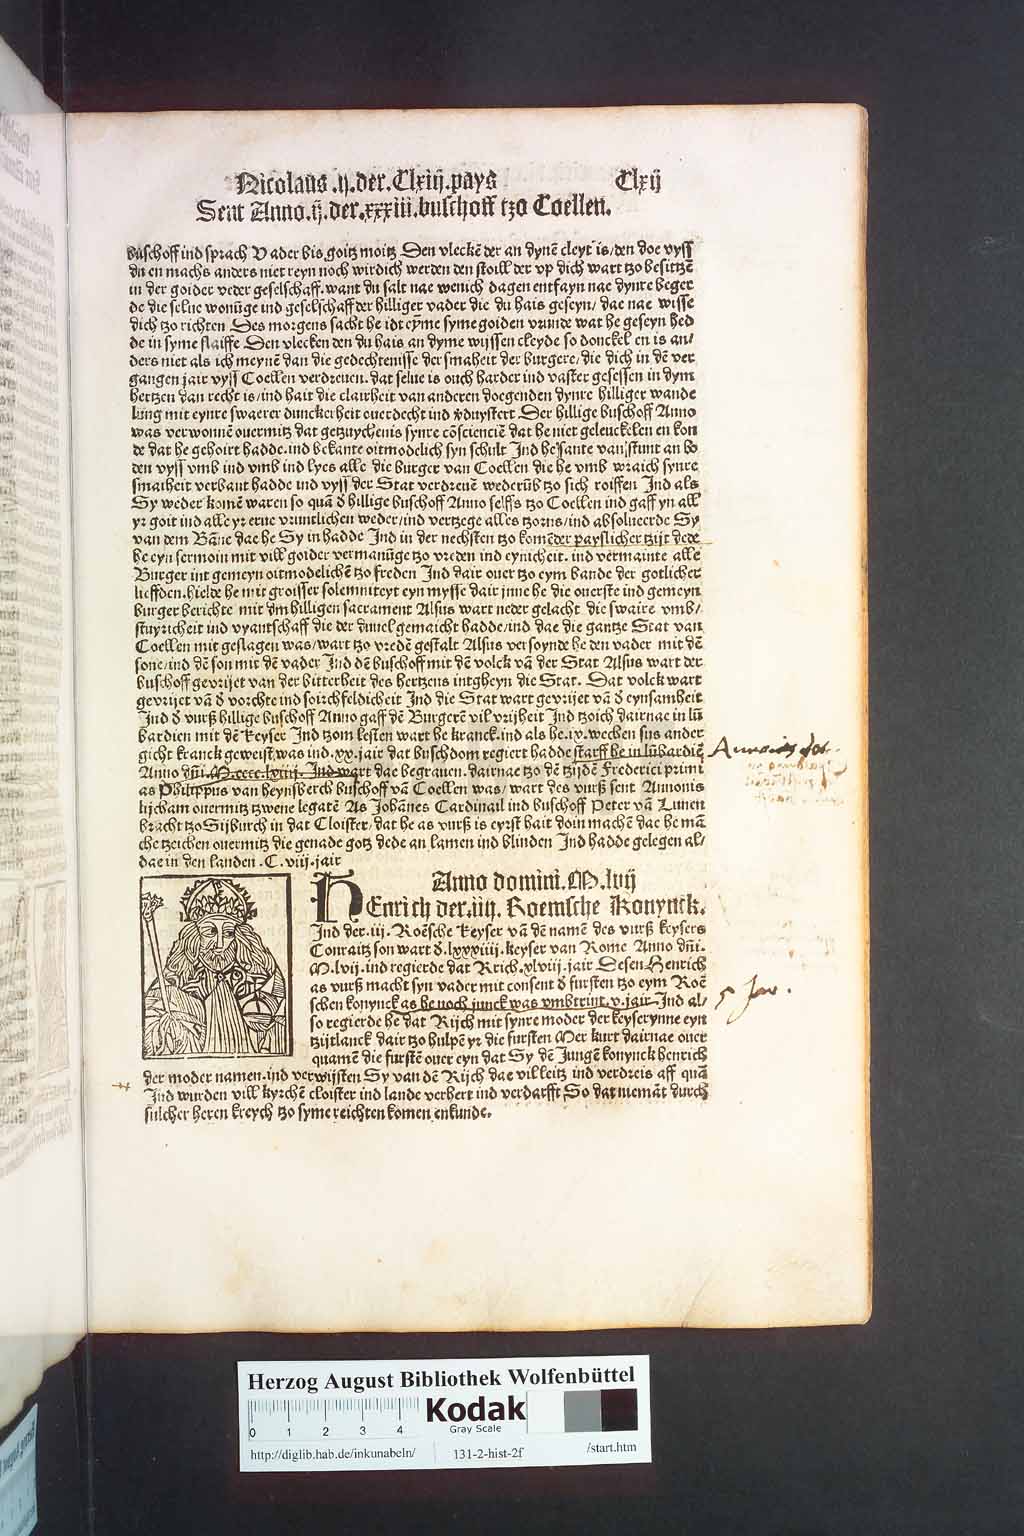 Nicolaus .ij. der. Clxiij. pays Clxij
Sent Anno .ij. der .xxxiii. buschoff tzo Coellen.
buschoff ind sprach Vader bis goitz moitz Den vleckē der an dynē cleyt is/den doe vyss
du en machs anders niet reyn noch wirdich werden den stoill der vp dich wart tzo besitzē
in der goider veder geselschaff. want du salt nae wenich dagen entfayn nae dynre beger
de die selue wonūge ind geselschaff der hilliger vader die du hais geseyn/ dae nae wisse
dich tzo richten Des morgens sacht he idt eyme syme goiden vrunde wat he geseyn hed
de in syme slaiffe Den vlecken den du hais an dyme wijssen cleyde so donckel en is an/
ders niet als ich meynē dan die gedechtenisse der smaheit der burgere/ die dich in dē ver
gangen jair vyss Coellen verdreuen. dat selue is ouch harder ind vaster gesessen in dym
hertzen dan recht is/ind hait die clairheit van anderen doegenden dynre hilliger wande
lung mit eynre swaerer dunckerheit ouerdecht ind vduystert Der hillige buschoff Anno
was verwonnē ouermitz dat getzuychenis synre cōsciencie dat he niet geleuckelen en kon
de dat he gehoirt hadde. ind bekante oitmodelich syn schult Ind he sante van stunt an bo
den vyss vmb ind vmb ind lyes alle die burger van Coellen die he vmb wraich synre
smaiheit verbant hadde ind vyss der Stat verdreuē wederūb tzo sich roiffen Ind als
Sy weder komē waren so quā d hillige buschoff Anno selffs tzo Coellen ind gaff yn all
yr goit ind alle yr erue vruntlichen weder/ind vertzege alles tzorns/ind absolueerde Sy
van dem Bāne dae he Sy in hadde Ind in der nechsten tzo komēder payslicher tzijt dede
he eyn sermoin mit vill goider vermanūge tzo vreden ind eynicheit. ind vermainte alle
Burger int gemeyn oitmodelichē tzo freden Ind dair ouer tzo eym bande der gotlicher
lieffden. hielde he mit groisser solemniteyt eyn mysse dair jnne he die ouerste ind gemeyn
burger berichte mit dm hilligen sacrament Alsus wart neder gelacht die swaire vmb/
stuyricheit ind vyantschaff die der duuel gemaicht hadde/ind dae die gantze Stat van
Coellen mit geslagen was/wart tzo vredē gestalt Alsus versoynde he den vader mit dē
sone/ind dē son mit dē vader Ind dē buschoff mit dē volck vā der Stat Alsus wart der
buschoff gevrijet van der bitterheit des hertzens intgheyn die Stat. Dat volck wart
gevrijet vā d vorchte ind soirchfeldicheit Ind die Stat wart gevrijet vā d eynsamheit
Ind d vurß hillige buschoff Anno gaff dē Burgerē vil vrijheit Ind tzoich dairnae in lū
bardien mit dē keyser Ind tzom lesten wart he kranck. ind als he .ix. wechen sus ander
gicht kranck geweist was ind .xx. jair dat buschdom regiert hadde starff he in lūbardiē
Anno dñi. M.cccc.lxiiij. Ind wart dae begrauen. dairnae tzo dē tzijdē Frederici primi
as Philippus van heynsberch buschoff vā Coellen was/ wart des vurß sent Annonis
lijcham ouermitz tzwene legatē As Johānes Cardinail ind buschoff Peter vā Lunen
bracht tzo Sijburch in dat Cloister/ dat he as vurß is eyrst hait doin machē dae he mā
che tzeichen ouermitz die genade gotz dede an lamen ind blinden Ind hadde gelegen al/
dae in den landen .C. viij. jair
Anno domini. M. lvij
HEnrich der. iiij. Roemsche Konynck.
Ind der .iij. Roēsche keyser vā dē namē des vurß keysers
Conraitz son wart d. lxxxiiij. keyser van Rome Anno dñi.
M. lvij. ind regierde dat Rrich. xlviij. jair Desen Henrich
as vurß macht syn vader mit consent d fursten tzo eym Roē
schen konynck as he noch junck was vmbtrint. v. jair. Ind al/
so regierde he dat Rijch mit synre moder der keyserynne eyn
tzijtlanck dair tzo hulpē yr die fursten Mer kurt dairnae ouer
quamē die furstē ouer eyn dat Sy dē Jungē konynck henrich
der moder namen. ind verwijsten Sy van dē Rijch dae vil leitz ind verdreis aff quā
Ind wurden vill kyrchē cloister ind lande verhert ind verdarfft So dat niemāt durch
sulcher heren kreych tzo syme reichten komen enkunde.
5 Jar.
Herzog August Bibliothek Wolfenbüttel
0 1 2 3 4
Kodak
Gray Scale
http://diglib.hab.de/inkunabeln/ 131-2-hist-2f /start.htm